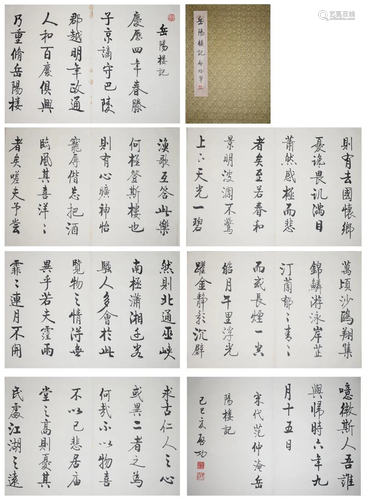 岳陽樓記
慶歷四年春滕
子京謫守巴陵
郡越明年政通
人和百廢俱興
乃重脩岳陽樓
岳陽樓記
則有去國懷鄉
憂讒畏譏滿目
蕭然感極而悲
者矣至若春和
景明波瀾不驚
上下天光一碧
漁歌互答此樂
何極登斯樓也
則有心曠神怡
寵辱偕忘把酒
臨風其喜洋〻
者矣嗟夫予嘗
萬頃沙鷗翔集
錦鱗游泳岸芷
汀蘭郁〻青〻
而或長煙一空
皓月千里浮光
躍金靜影沉璧
然則北通巫峽
南極瀟湘遷客
騷人多會於此
覽物之情得無
異乎若夫霪雨
霏〻連月不開
噫微斯人吾誰
與歸時六年九
月十五日
宋代范仲淹岳
陽樓記
啟功
求古仁人之心
或異二者之為
何哉不以物喜
不以己悲居廟
堂之高則憂其
民處江湖之遠